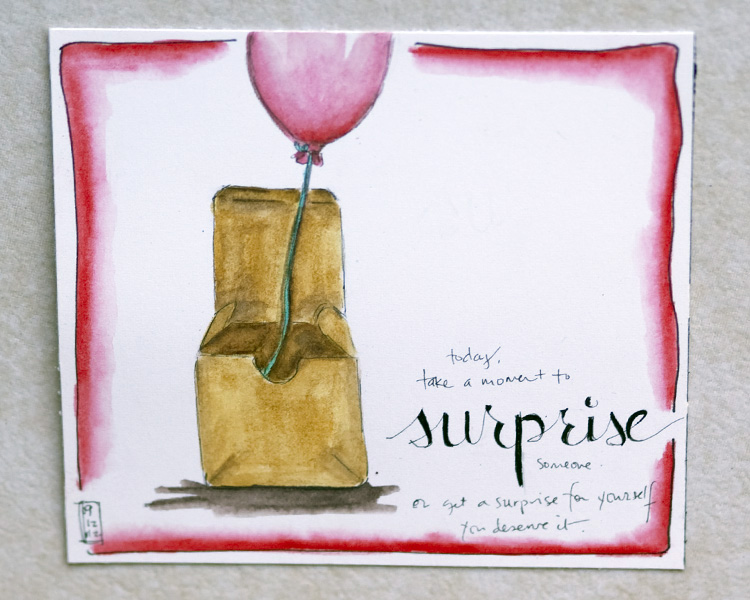 today,
take a moment to
surprise
someone.
or get a surprise for yourself
you deserve it.
19
12